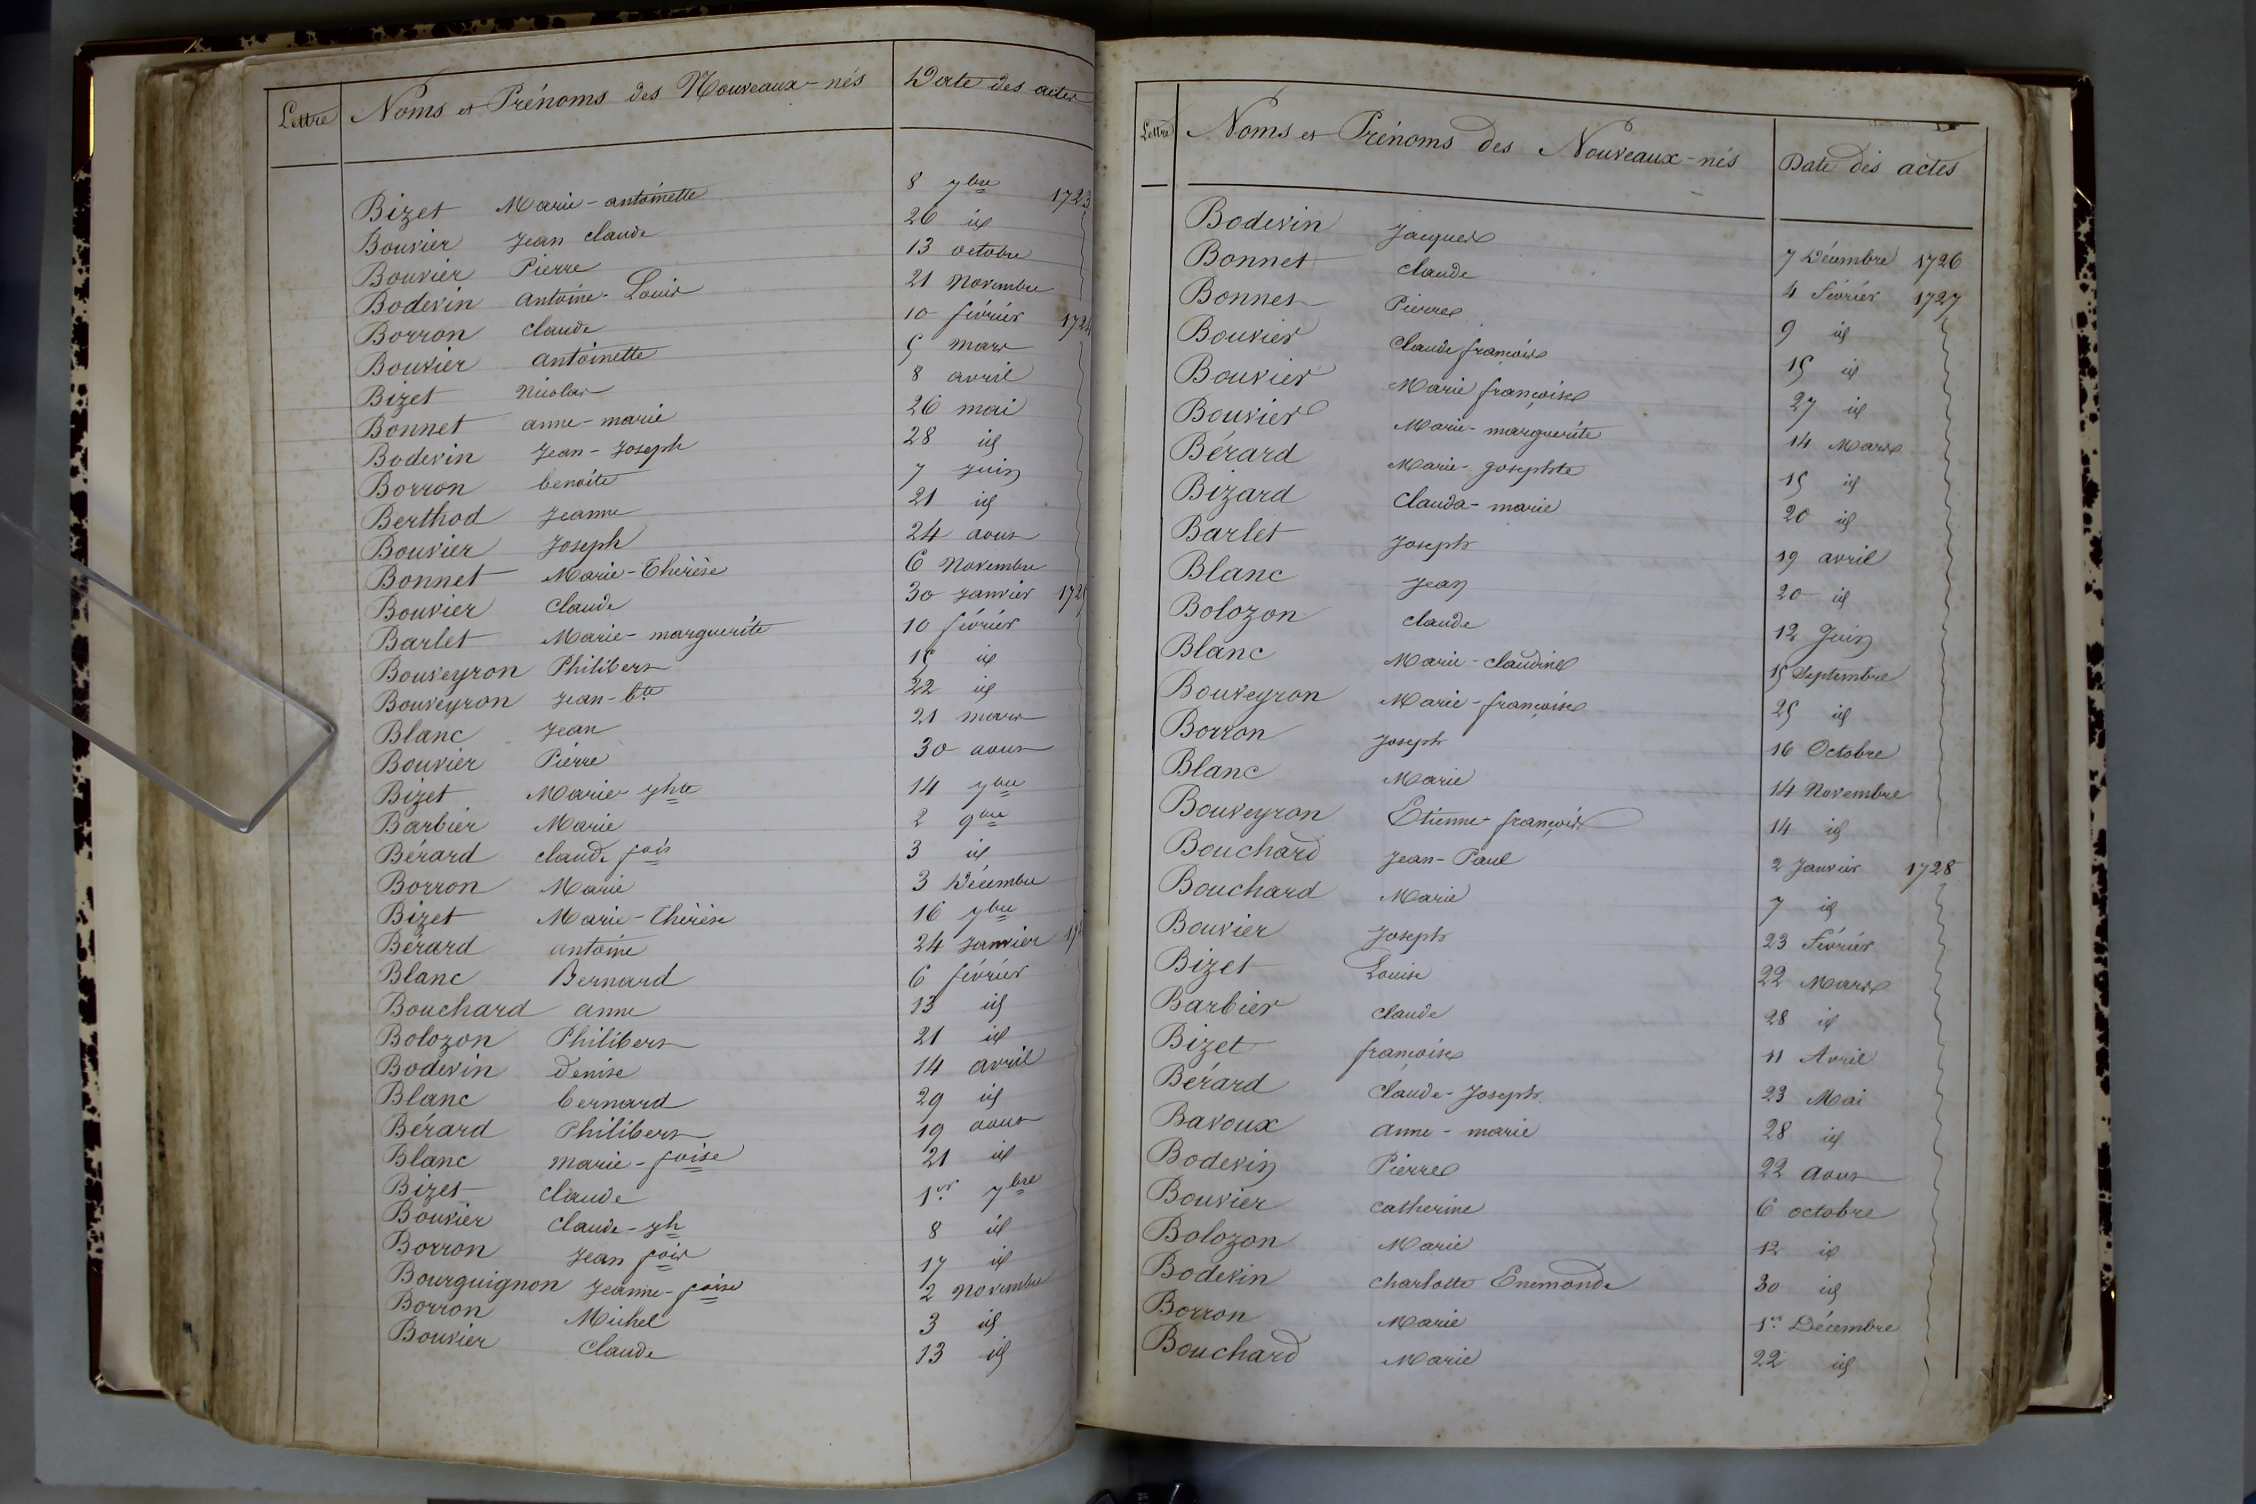 Lettre Noms et Prénoms des Nouveaux-nés Date des actes
Bizet Marie-antoinette 8 7bre 1723
Bouvier Jean claude 26 id
Bouvier Pierre 13 octobre
Bodevin antoine-Louis 21 Novembre
Borron claude 10 février
Bouvier antoinette 5 mars
Bizet Nicolas 8 avril
Bonnet anne-marie 26 mai
Bodevin Jean-Joseph 28 id
Borron benoite 7 juin
Berthod Jeanne 21 id
Bouvier Joseph 24 aout
Bonnet Marie-Thérèse 6 Novembre
Bouvier claude 30 janvier
Barlet Marie-marguerite 10 février
Bouveyron Philibert 15 id
Bouveyron Jean-bte 22 id
Blanc Jean 21 mars
Bouvier Pierre 30 aout
Bizet Marie jhte 14 7bre
Barbier Marie 2 9bre
Bérard claude fois 3 id
Borron Marie 3 Décembre
Bizet Marie-Thérèse 16 7bre
Bérard antoine 24 janvier
Blanc Bernard 6 février
Bouchard anne 13 id
Bolozon Philibert 21 id
Bodevin Denise 14 avril
Blanc bernard 29 id
Bérard Philibert 19 aout
Blanc marie-foise 21 id
Bizet claude 1er 7bre
Bouvier claude-jh 8 id
Borron Jean fois 17 id
Bourguignon Jeanne-foise 2 novembre
Borron Michel 3 id
Bouvier claude 13 id
Lettre Noms et Prénoms des Nouveaux-nés Date des actes
Bodevin Jacques 7 Décembre 1726
Bonnet claude 4 Février 1727
Bonnet Pierre 9 id
Bouvier claude françois 15 id
Bouvier Marie françoise 27 id
Bouvier Marie-marguerite 14 Mars
Bérard Marie-josephte 15 id
Bizard Clauda-marie 20 id
Barlet Joseph 19 avril
Blanc Jean 20 id
Bolozon claude 12 Juin
Blanc Marie-claudine 15 Septembre
Bouveyron Marie-françoise 25 id
Borron Joseph 16 Octobre
Blanc Marie 14 Novembre
Bouveyron Etienne-françois 14 id
Bouchard Jean-Paul 2 Janvier 1728
Bouchard Marie 7 id
Bouvier Joseph 23 Février
Bizet Louise 22 Mars
Barbier claude 28 id
Bizet françoise 11 Avril
Bérard Claude-Joseph 23 Mai
Bavoux anne-marie 28 id
Bodevin Pierre 22 aout
Bouvier catherine 6 octobre
Bolozon Marie 12 id
Bodevin charlotte Enemonde 30 id
Borron Marie 1er Décembre
Bouchard Marie 22 id